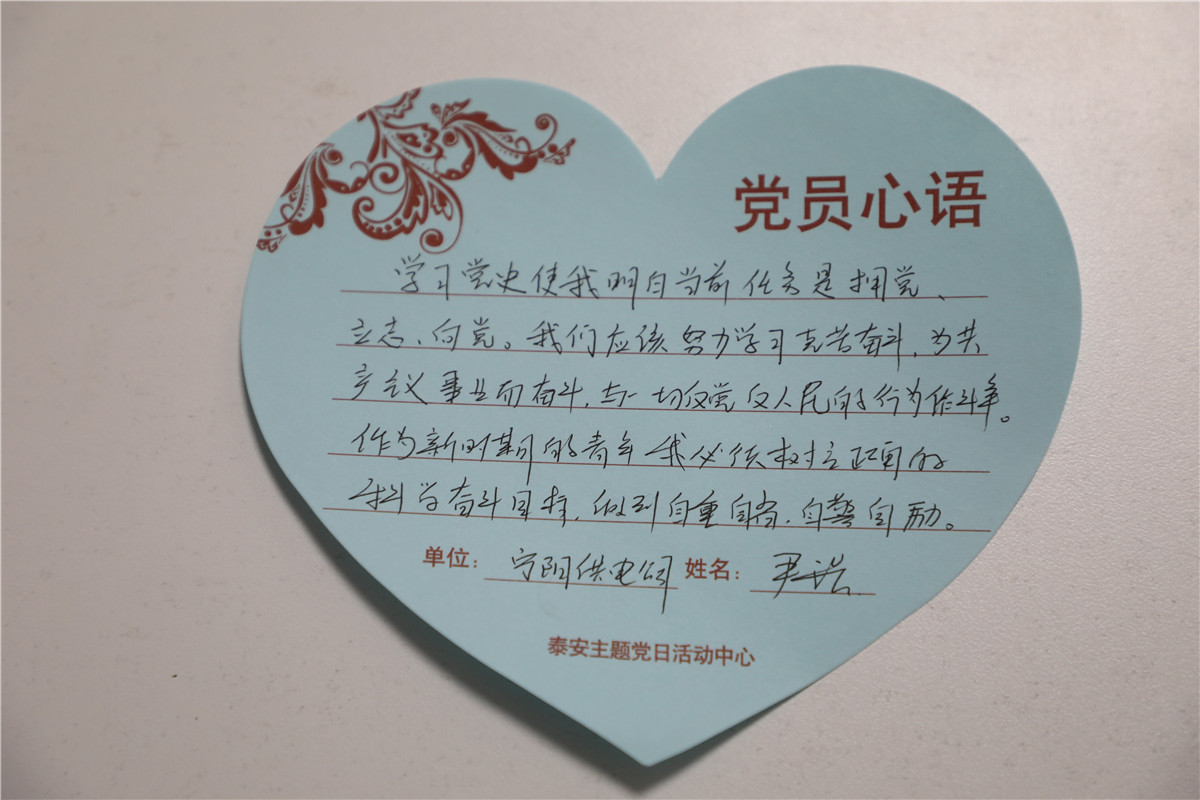 党员心语
学习党史使我明白当前任务是拥党、
立志、向党。我们应该努力学习克苦奋斗,为共
产主义事业而奋斗,与一切反党反人民的行为作斗争。
作为新时期的青年我必须树立正确的
科学奋斗目标,做到自重自省,自警自励。
单位:宁阳供电公司 姓名:尹
泰安主题党日活动中心